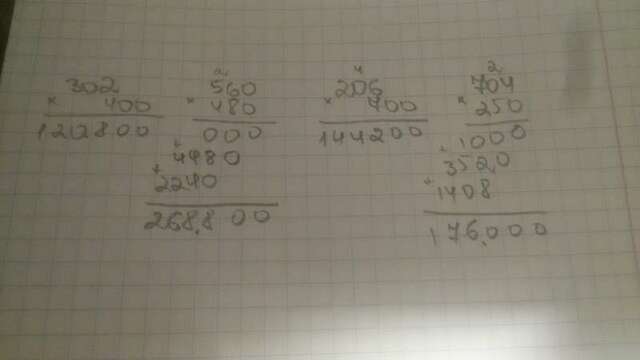 302
× 400
2
560
× 480
000
+ 4480
+ 2240
268.800
4
206
× 700
144200
2
704
× 250
+ 3520
+ 1408
176.000